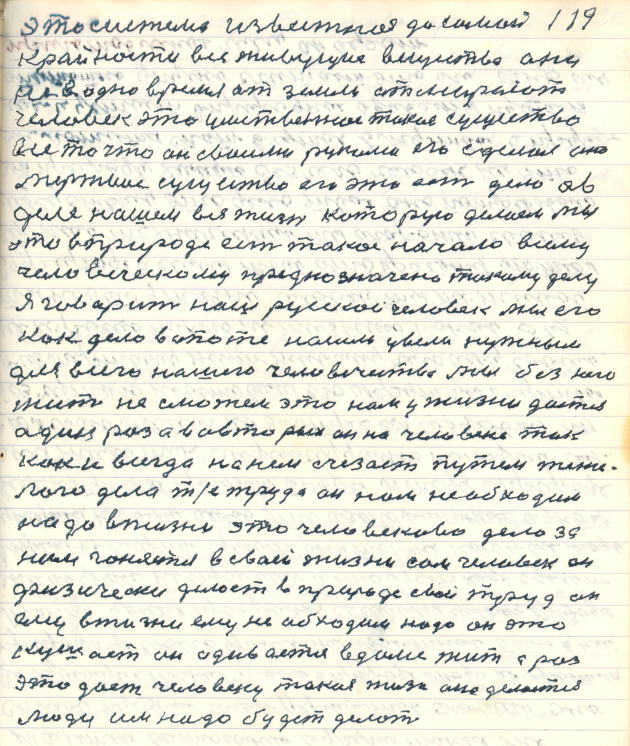 Это система известная до самой 119
крайности все живущие вещества они
не водно время от земли отсыхают
человек это умственное такое существо
все то что он своими руками его сделал оно
мертвые существо его это есть дело а в
деле нашем вся жизн которую делаем мы
это в природе ест такое начало всему
человеческому предназначено такому делу
Я говарит наш русской человек мы его
как дело в опоте нашли увели нужным
для всего нашего человечества мы без него
жит не сможем это нам у жизни дается
один раз а во вторых он на человека так
как и всегда на нем счезает путем тяже-
лого дела т/е труда он нам необходим
надо в жизни это человеково дело за
ним гонятся в своей жизни сам человек он
физически делает в природе свой труд он
ему в жизни ему необходим надо он это
кушает он одивается в доме жит а раз
это дает человеку такая жизн она делается
люди им надо будет делат